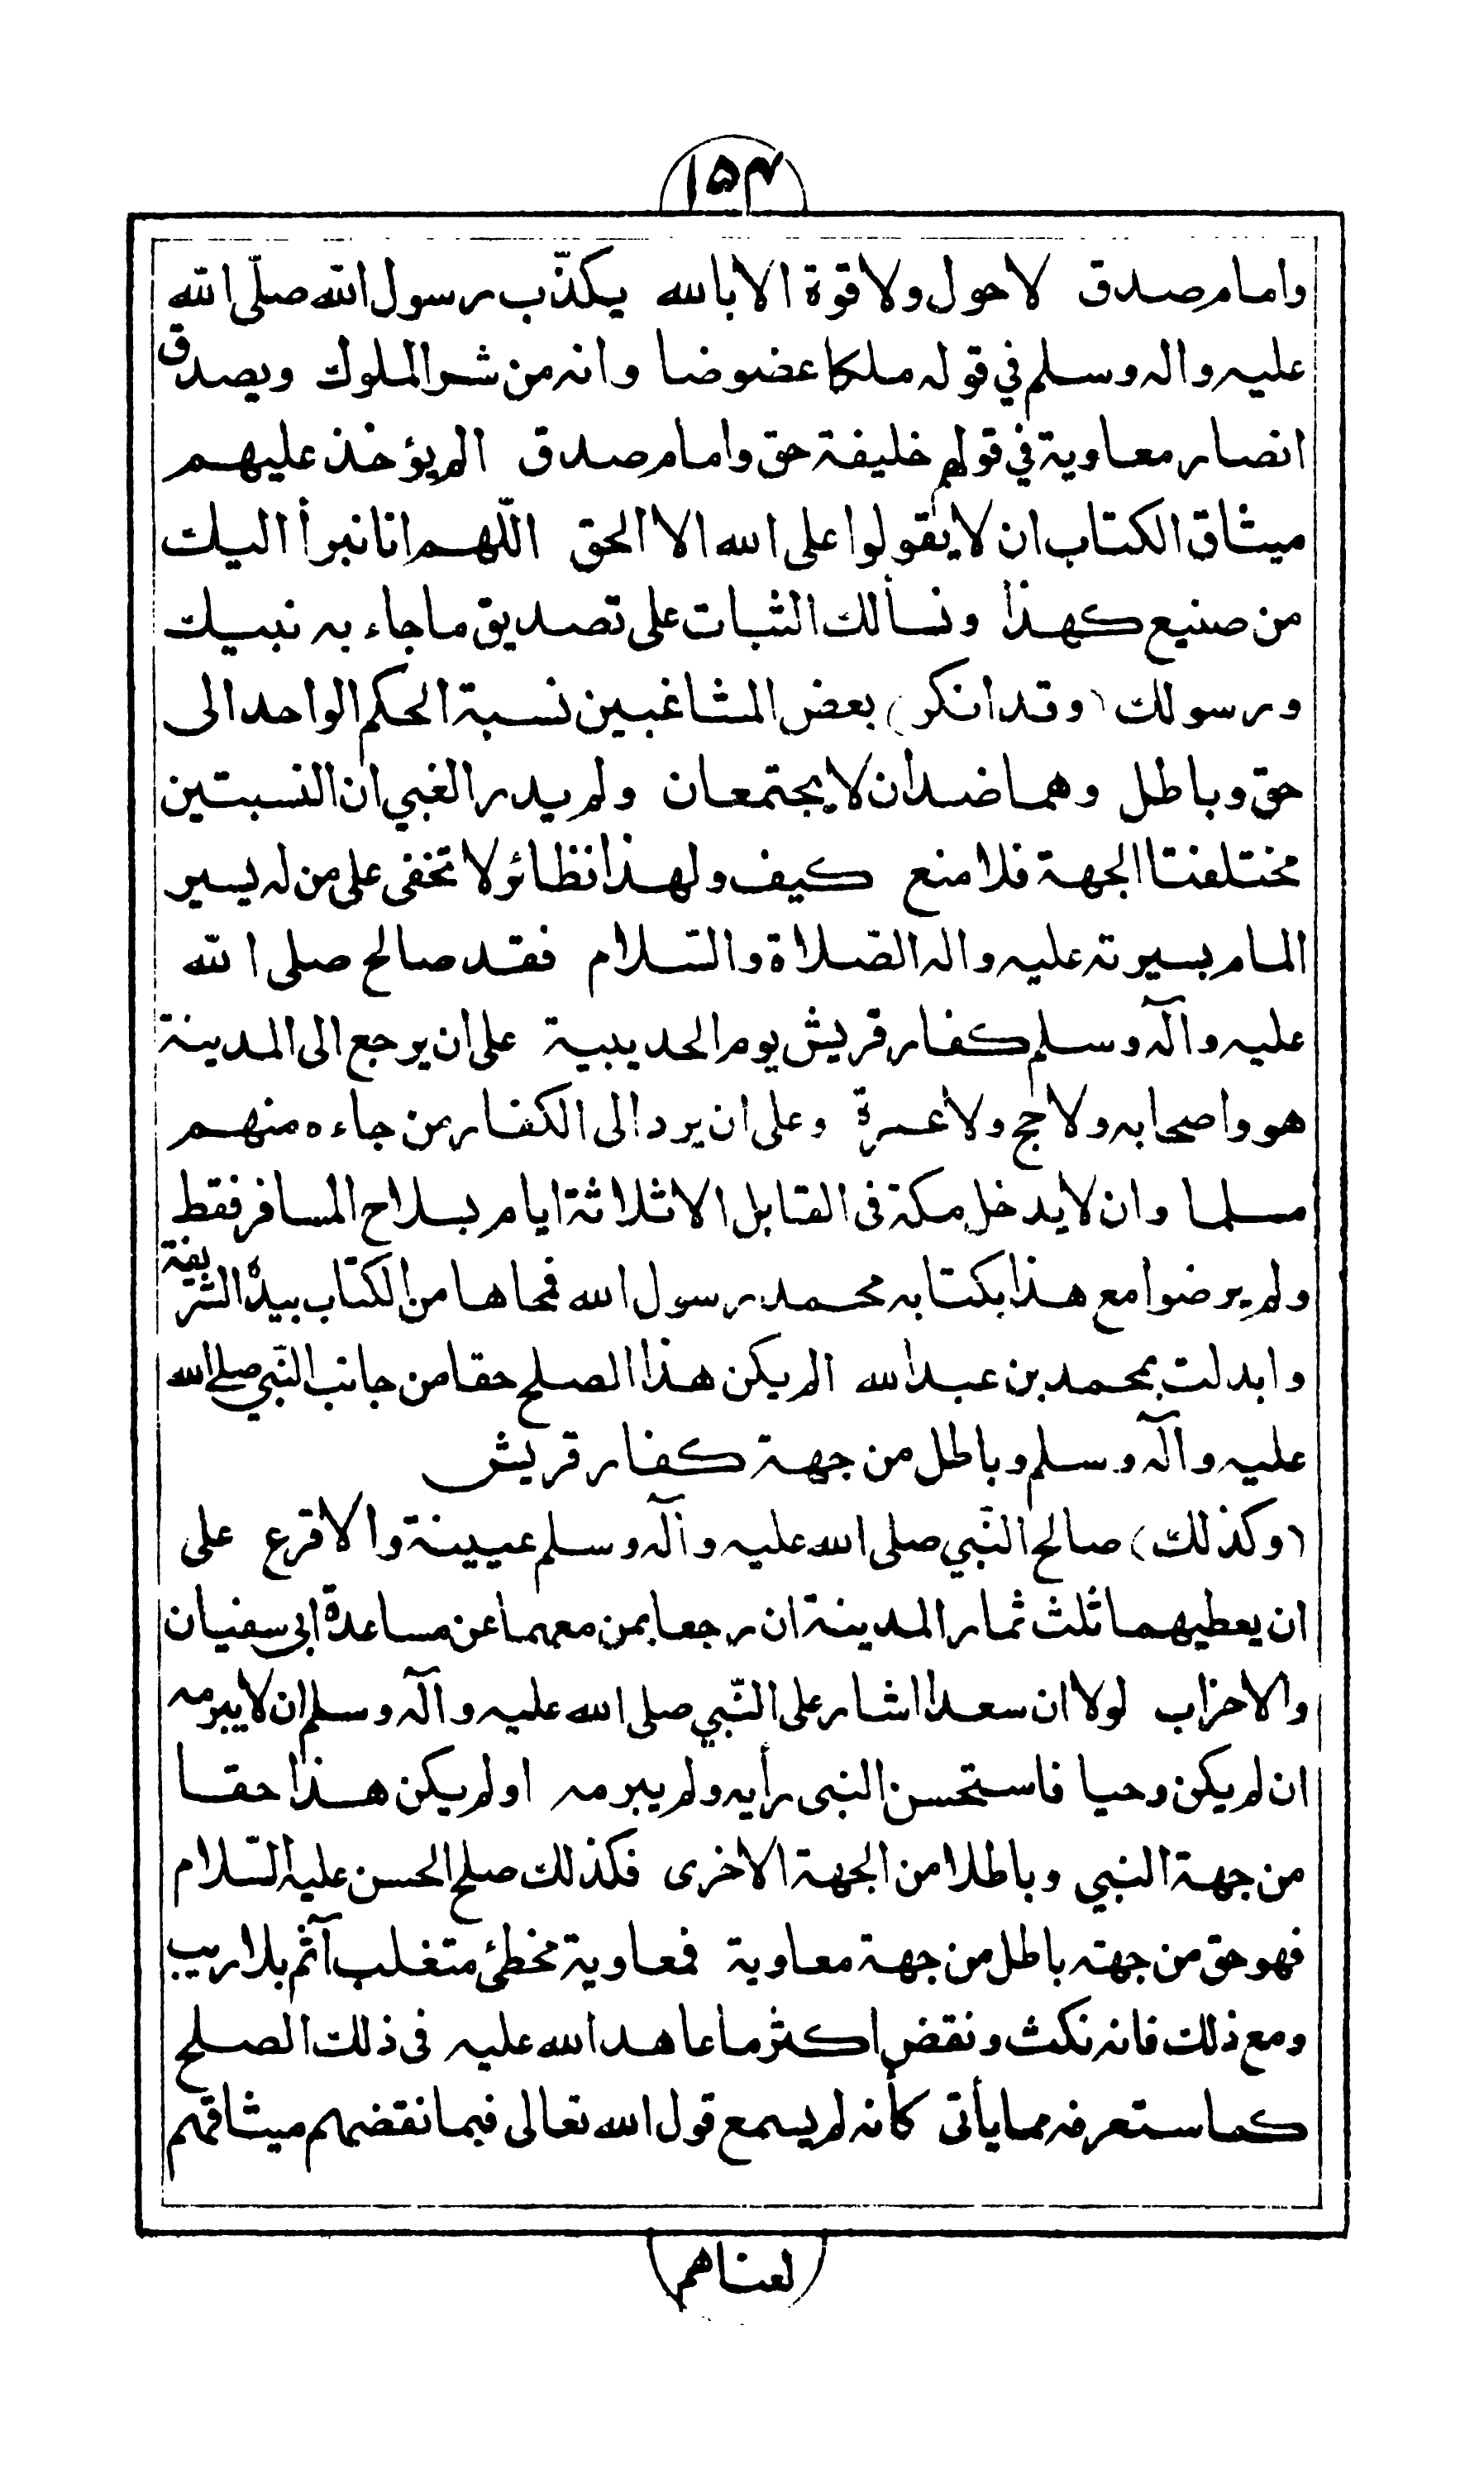 ١٥٤
وامام صدق لا حول ولا قوة الا بالله يكذّب رسول الله صلّى الله
عليه واله وسلم في قوله ملكا عضوضا وانه من شر الملوك ويصدق
انصار معاوية في قولهم خليفة حق وامام صدق الم يؤخذ عليهم
ميثاق الكتاب ان لا يقولوا على الله الا الحق اللّهم انا نبرأ اليك
من صنيع كهذا ونسألك الثبات على تصديق ما جاء به نبيك
ورسولك (وقد انكر) بعض المشاغبين نسبة الحكم الواحد الى
حق وباطل وهما ضدان لا يجتمعان ولم يدر الغبي ان النسبتين
مختلفتا الجهة فلا منع كيف ولهذا نظائر لا تخفى على من له يسير
المام بسيرته عليه واله الصّلاة والسّلام فقد صالح صلى الله
عليه وآله وسلم كفار قريش يوم الحديبية على ان يرجع الى المدينة
هو واصحابه ولا حج ولا عمرة وعلى ان يرد الى الكفار من جاءه منهم
مسلما وان لا يدخل مكة فى القابل الا ثلاثة ايام بسلاح المسافر فقط
ولم يرضوا مع هذا بكتابه محمد رسول الله فمحاها من الكتاب بيده الشريفة
وابدلت بمحمد بن عبد الله الم يكن هذا الصلح حقا من جانب النّبي صلى الله
عليه وآله وسلم وباطل من جهة كفار قريش
(وكذلك) صالح النّبي صلى الله عليه وآله وسلم عيينة والاقرع على
ان يعطيهما ثلث ثمار المدينة ان رجعا بمن معهما عن مساعدة ابى سفيان
والاحزاب لولا ان سعدا اشار على النّبي صلى الله عليه وآله وسلم ان لا يبرمه
ان لم يكن وحيا فاستحسن النبى رأيه ولم يبرمه او لم يكن هذا حقا
من جهة النبي وباطلا من الجهة الاخرى فكذلك صلح الحسن عليه السّلام
فهو حق من جهته باطل من جهة معاوية فمعاوية مخطئ متغلب آثم بلا ريب
ومع ذلك فانه نكث ونقض اكثر ما عاهد الله عليه فى ذلك الصلح
كما ستعرفه مما يأتى كأنه لم يسمع قول الله تعالى فبما نقضهم ميثاقهم
لعناهم